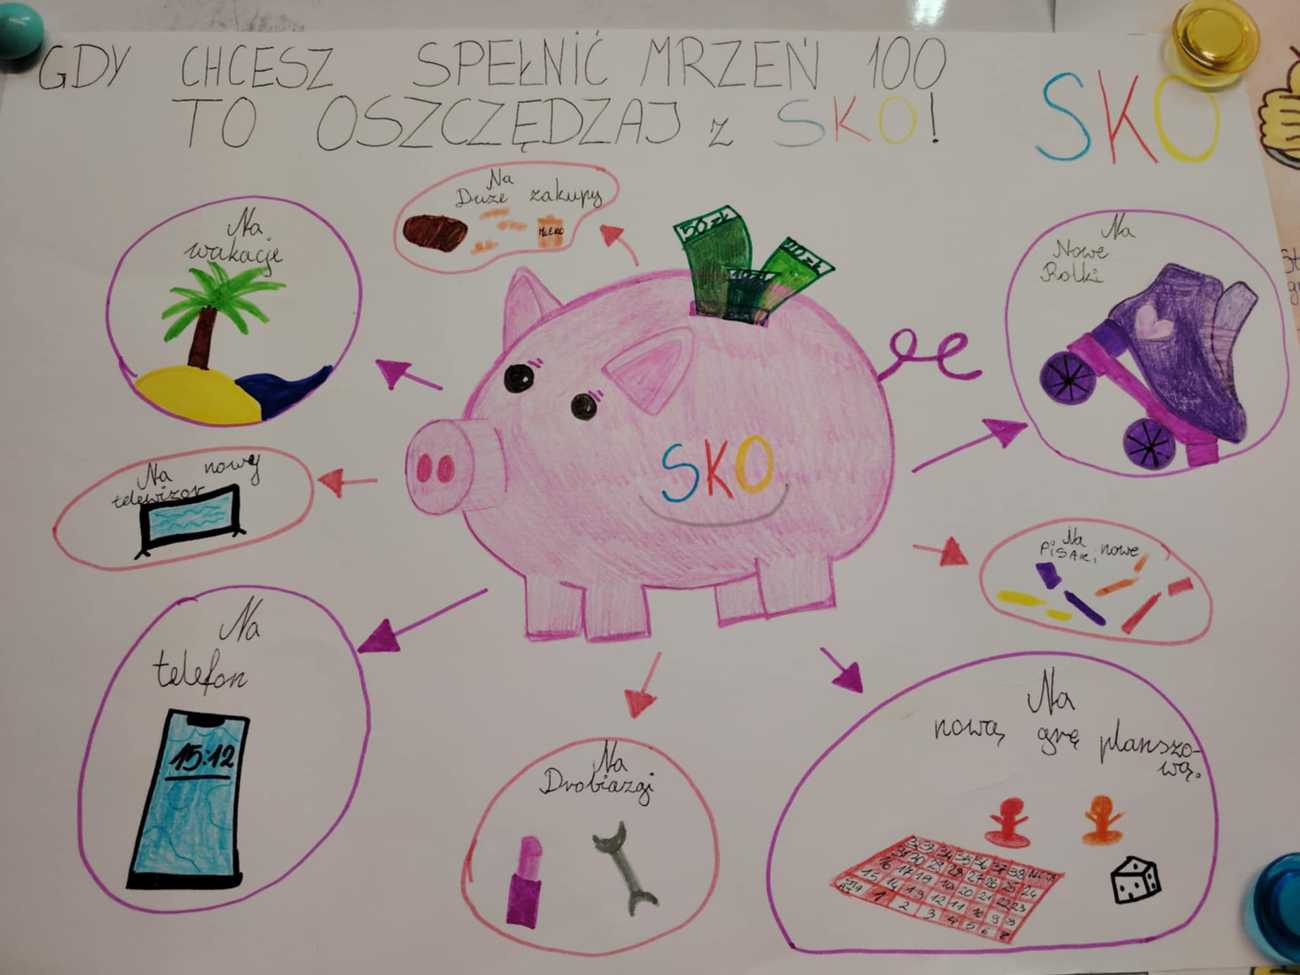 GDY CHCESZ SPEŁNIĆ MRZEŃ 100
TO OSZCZĘDZAJ z SKO!
SKO
Na
Duże zakupy
MLEKO
Na
wakacje
50 zł
Na
Nowe
Rolki
SKO
Na nowy
telewizor
Na
PiSAKi nowe
Na
telefon
15:12
Na
Drobiazgi
Na
nową grę planszo-
wą.